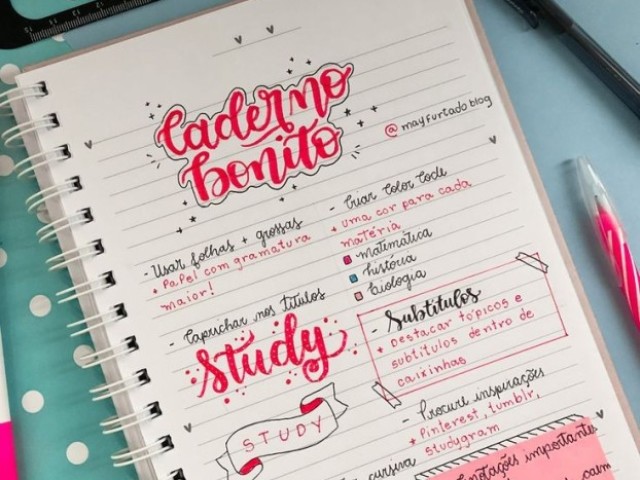 Caderno
bonito
@mayfurtadoblog
- Usar folhas + grossas
+ Papel com gramatura
maior!
- Criar Color Code
+ uma cor para cada
matéria
matemática
história
biologia
- Caprichar nos títulos
Study
STUDY
- Subtítulos
+ Destacar tópicos e
subtítulos dentro de
caixinhas
- Procure inspirações
+ Pinterest, tumblr,
studygram
cursiva
Anotações importantes
caem